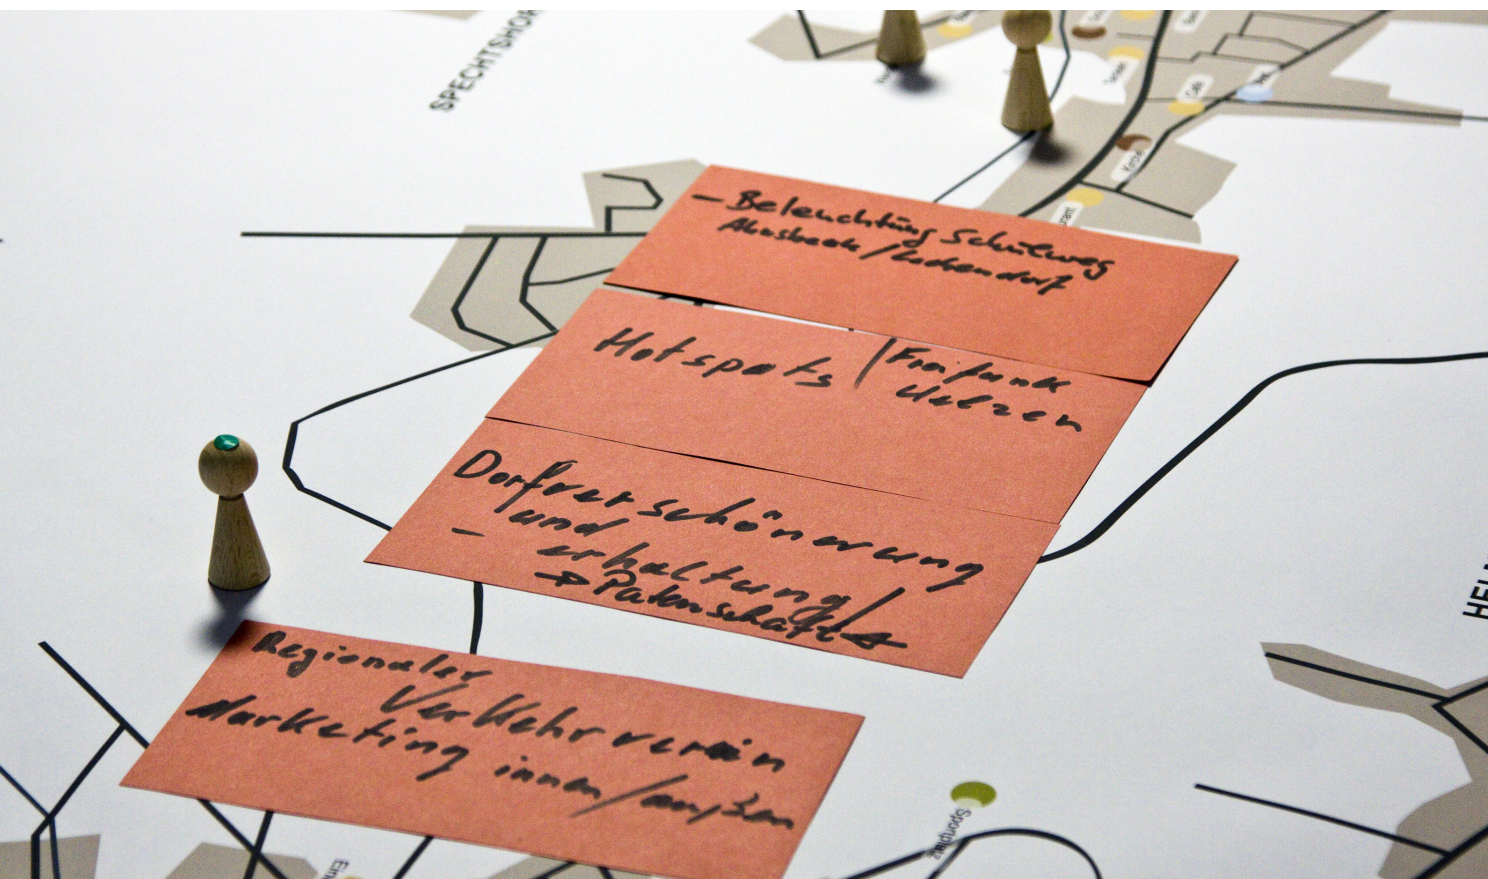 SPECHTSHOR
Café
Kirche
– Beleuchtung Schulweg
Ahnsbeck / Lachendorf
Hotspots | Freifunk
Uelzen
Dorfverschönerung
und
– erhaltung/
→ Patenschaft
Regionaler
Verkehrverein
Marketing innen/außen
Sportplatz
HEL
Ein